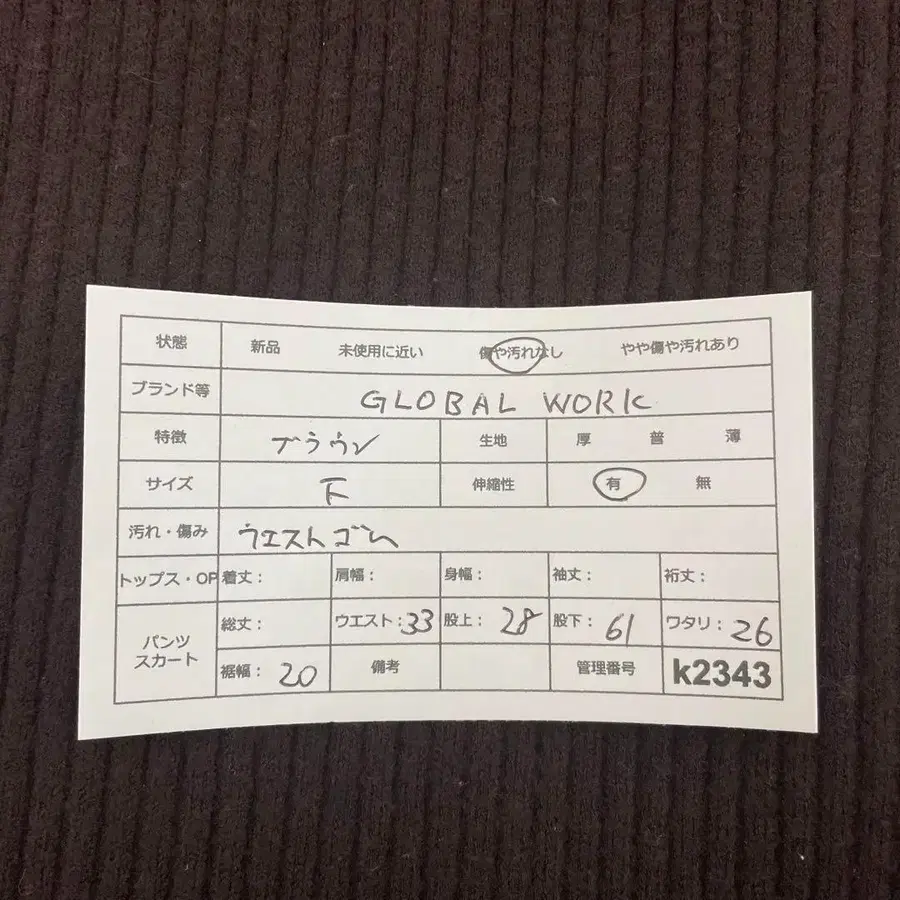 状態 新品 未使用に近い 傷や汚れなし やや傷や汚れあり
ブランド等 GLOBAL WORK
特徴 ブラウン 生地 厚 普 薄
サイズ 下 伸縮性 有 無
汚れ・傷み ウエストゴム
トップス・OP 着丈: 肩幅: 身幅: 袖丈: 裄丈:
パンツ スカート 総丈: ウエスト:33 股上:28 股下:61 ワタリ:26
裾幅:20 備考 管理番号 k2343